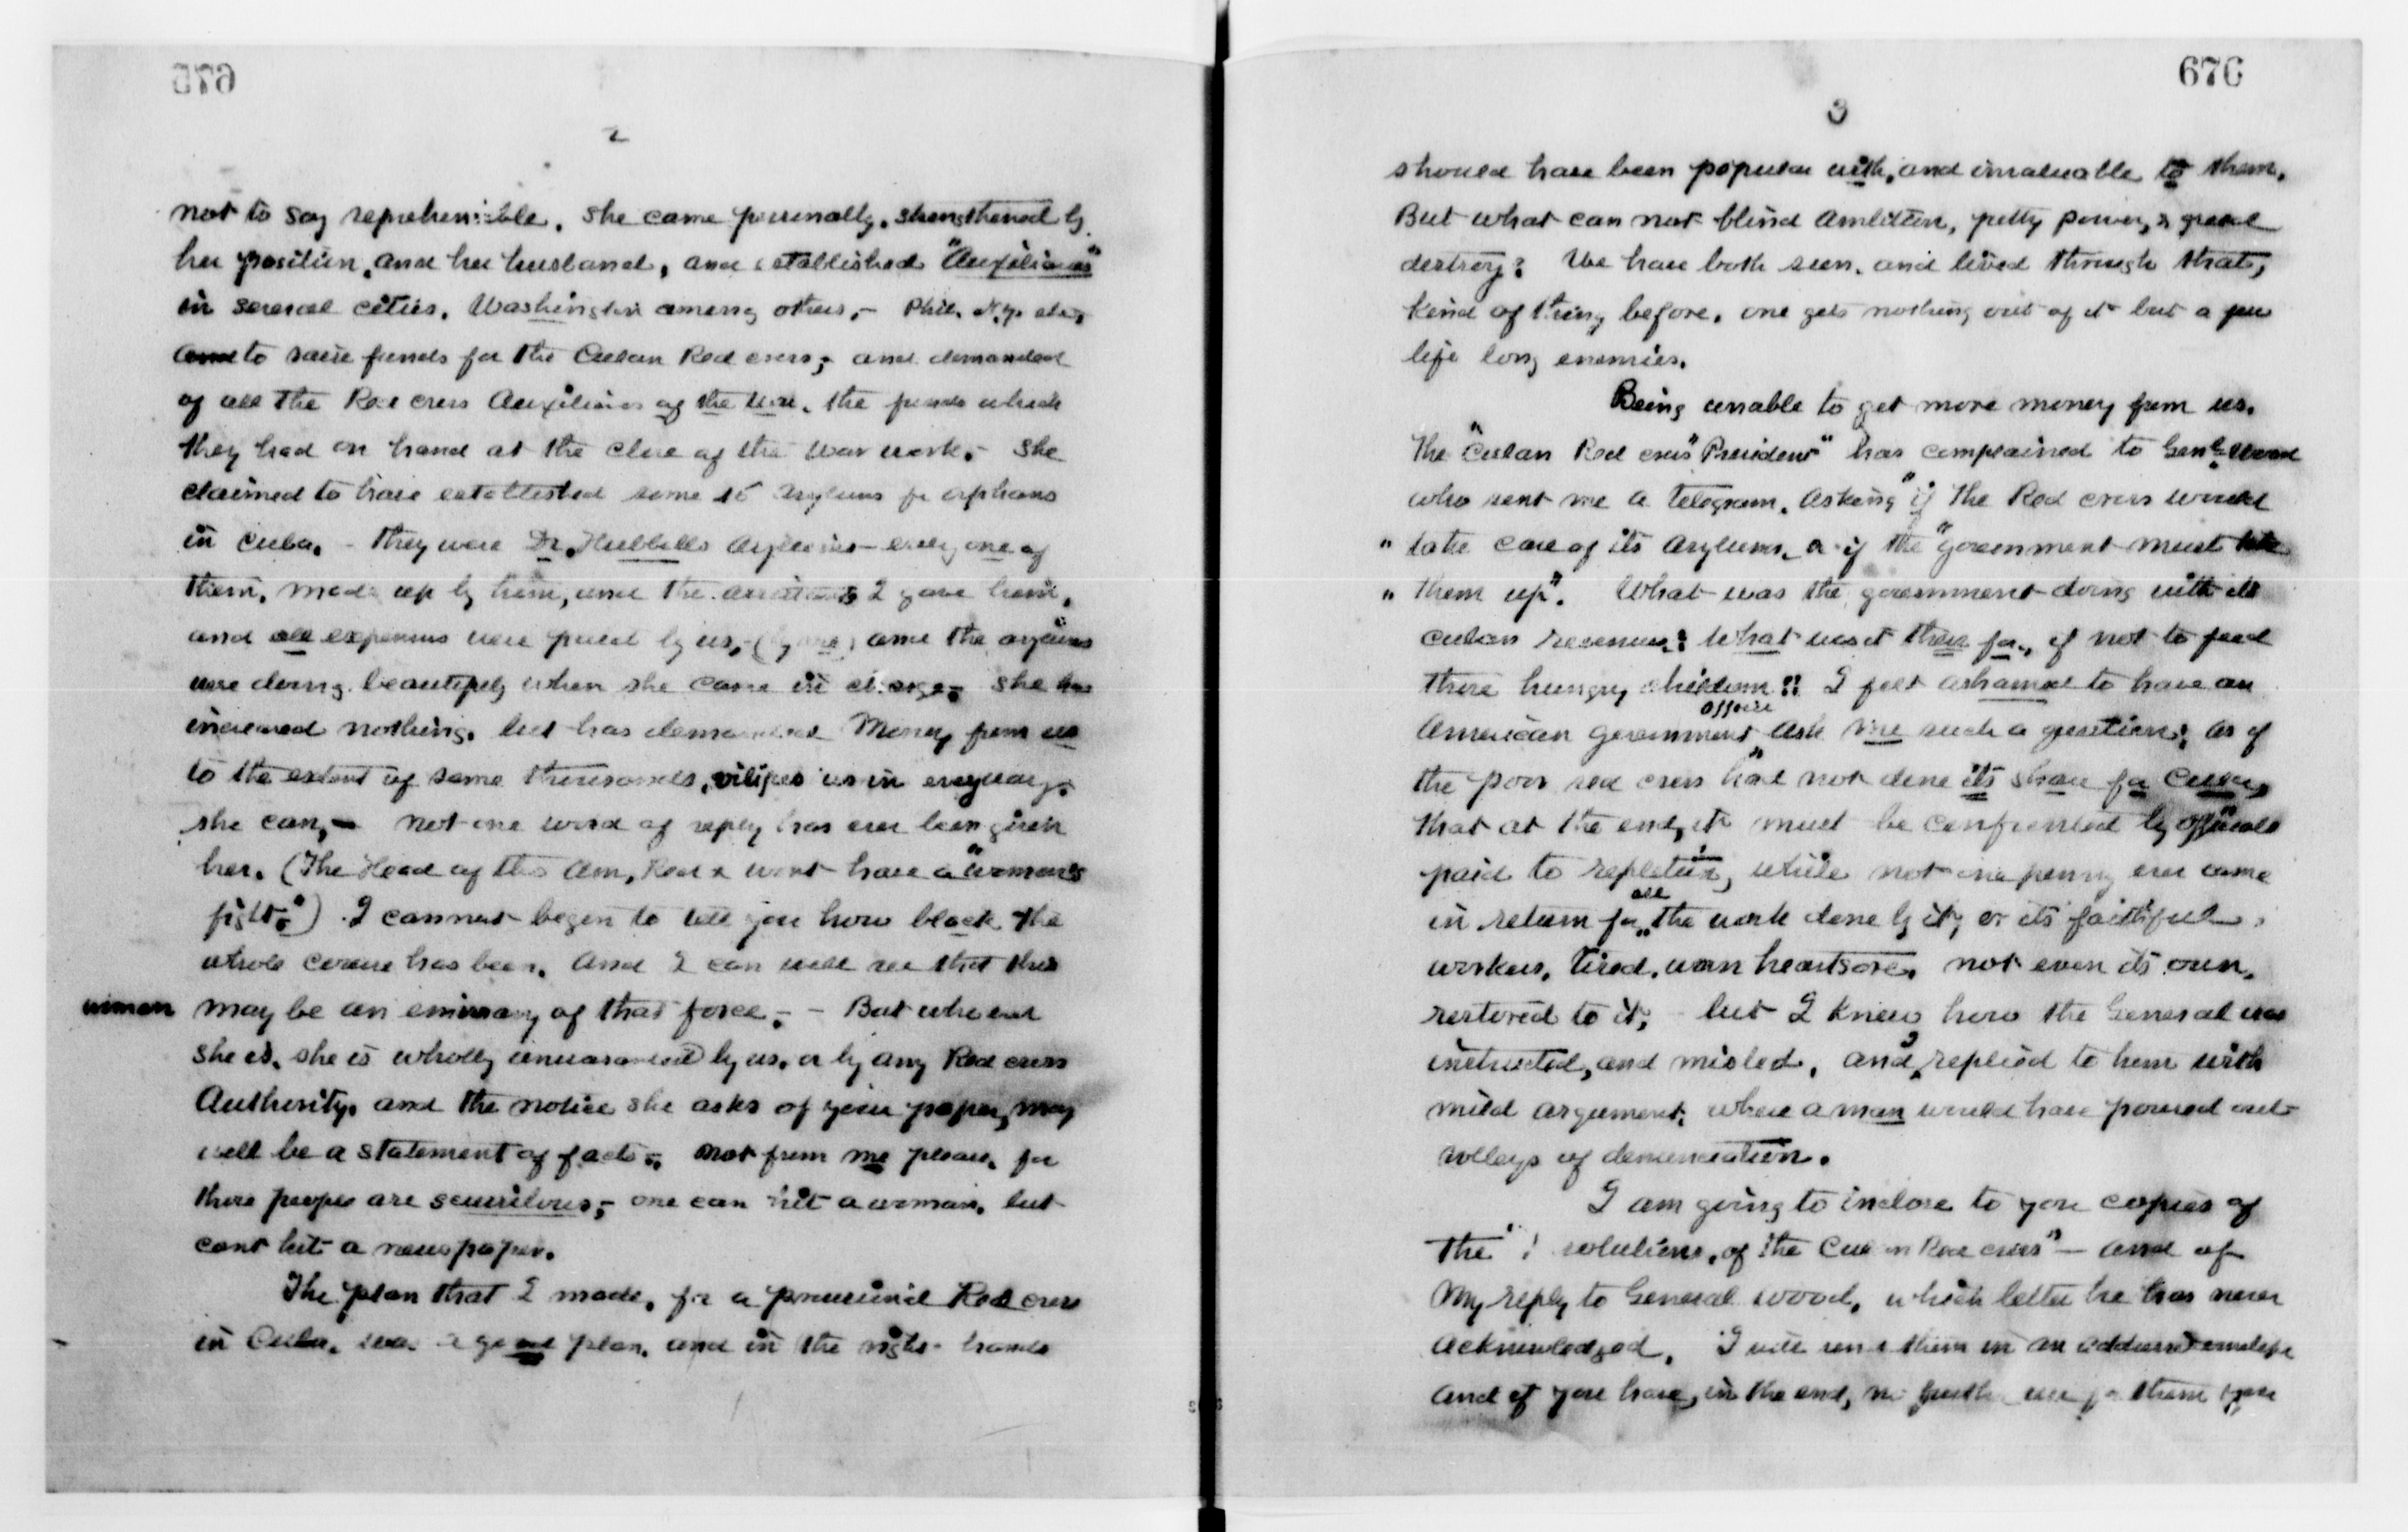 675
2
not to say reprehensible. She came personally, strengthened by
her position, and her husband, and established "Auxiliaries"
in several cities, Washington among others, - Phil. N.Y. etc,
to raise funds for the Cuban Red cross, and demanded
of all the Red cross Auxiliaries of the war, the funds which
they had on hand at the close of the war work. - She
claimed to have established some 15 Asylums for orphans
in Cuba. - They were Dr. Hubbells Asylums - every one of
them, made up by him, and the assistants I gave him,
and all expenses were paid by us, - (by me) and the asylums
were doing beautifully when she came in charge. She has
increased nothing, but has demanded Money from us
to the extent of some thousands, vilifies us in every way
she can, - not one word of reply has ever been given
her. (The Head of the Am, Red x wont have a "womans
fight.") I cannot begin to tell you how black the
whole course has been. And I can well see that this
woman may be an emissary of that force; - But who ever
she is, she is wholly unwarranted by us, or by any Red cross
Authority, and the notice she asks of your paper, may
well be a statement of facts; not from me please, for
these people are scurrilous, - one can hit a woman, but
cant hit a newspaper.
The plan that I made, for a provisional Red cross
in Cuba, was a good plan, and in the right hands
676
3
should have been popular with, and invaluable to them.
But what can not blind Ambition, petty power, & greed
destroy? We have both seen, and lived through that,
kind of thing before, one gets nothing out of it but a few
life long enemies.
Being unable to get more money from us,
the "Cuban Red cross" "President" has complained to Genl. Wood
who sent me a telegram, Asking "if the Red cross would
" take care of its Asylums, or if the "government must take
" them up". What was the government doing with its
cuban revenues? What was it there for, if not to feed
these hungry children?? I felt ashamed to have an
officer
American government ask me such a question; as if
the poor red cross had not done its share for Cuba,
that at the end, it must be confronted by officials
paid to repletion, while not one penny ever came
all
in return for the work done by it, or its faithful
workers, tired, worn heartsore, not even its own,
restored to it; - but I knew how the General was
instructed, and misled, and I replied to him with
mild argument, where a man would have poured out
volleys of denunciation.
I am going to inclose to you copies of
The "resolutions, of the Cuban Red cross" - and of
My reply to General Wood, which letter he has never
Acknowledged. I will send them in an addressed envelope
and if you have, in the end, no further use for them you